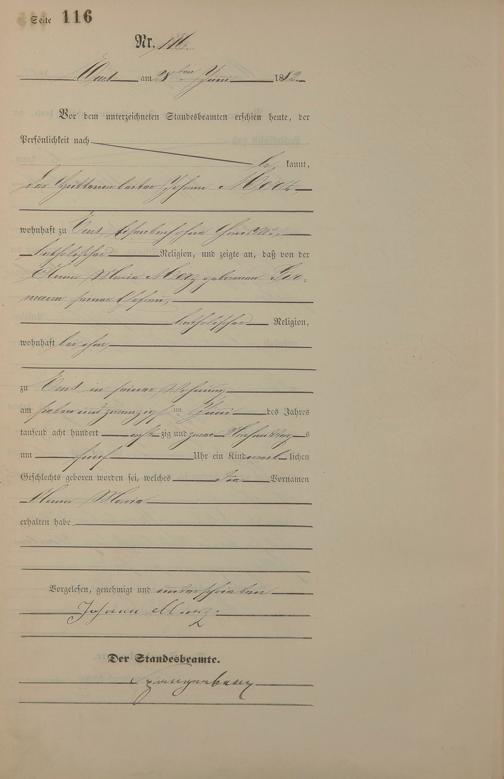 Seite 116
Nr. 116.
Ems am 28ten Juni 1882.
Vor dem unterzeichneten Standesbeamten erschien heute, der
Persönlichkeit nach
be kannt,
der Hüttenarbeiter Johann Merz
wohnhaft zu Ems,
katholischer Religion, und zeigte an, daß von der
Anna Maria Merz geborenen
seiner Ehefrau,
katholischer Religion,
wohnhaft bei ihm,
zu Ems in seiner Wohnung
am sieben und zwanzigsten Juni des Jahres
tausend acht hundert acht zig und zwei Nachmittags
um fünf Uhr ein Kind weib lichen
Geschlechts geboren worden sei, welches die Vornamen
Anna Maria
erhalten habe
Vorgelesen, genehmigt und unterschrieben
Johann Merz
Der Standesbeamte.